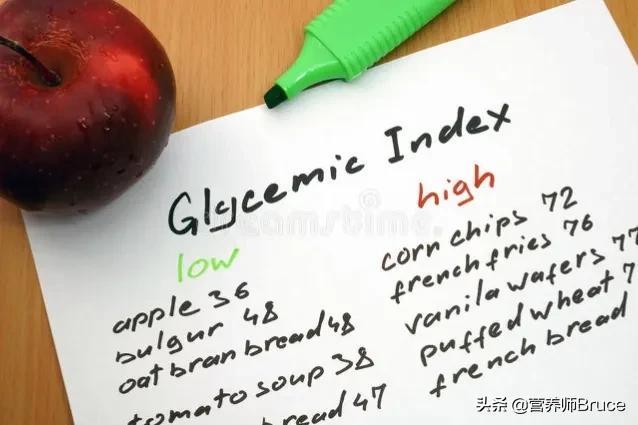 Glycemic Index
low
apple 36
bulgur 48
oat bran bread 48
tomato soup 38
bread 47
high
corn chips 72
french fries 76
vanila wafers 77
puffed wheat
french bread
dreamstime
头条 @营养师Bruce